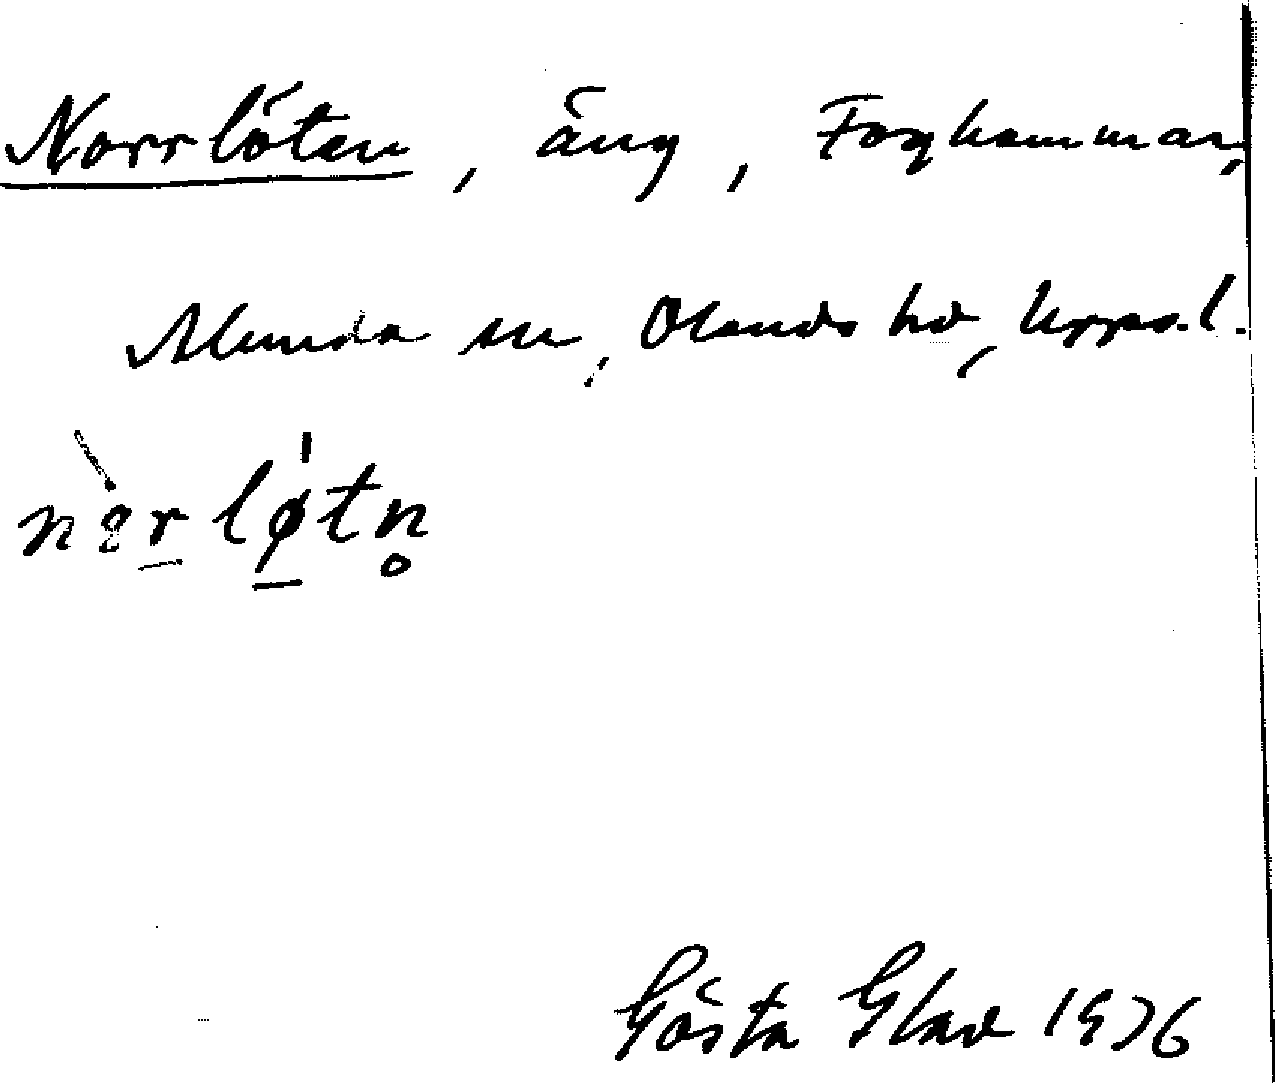 Norrlöten, äng, Foghammar,
Alunda sn, Olands hd, Upps. l.
nòrløtn̥
Gösta Glad 1936